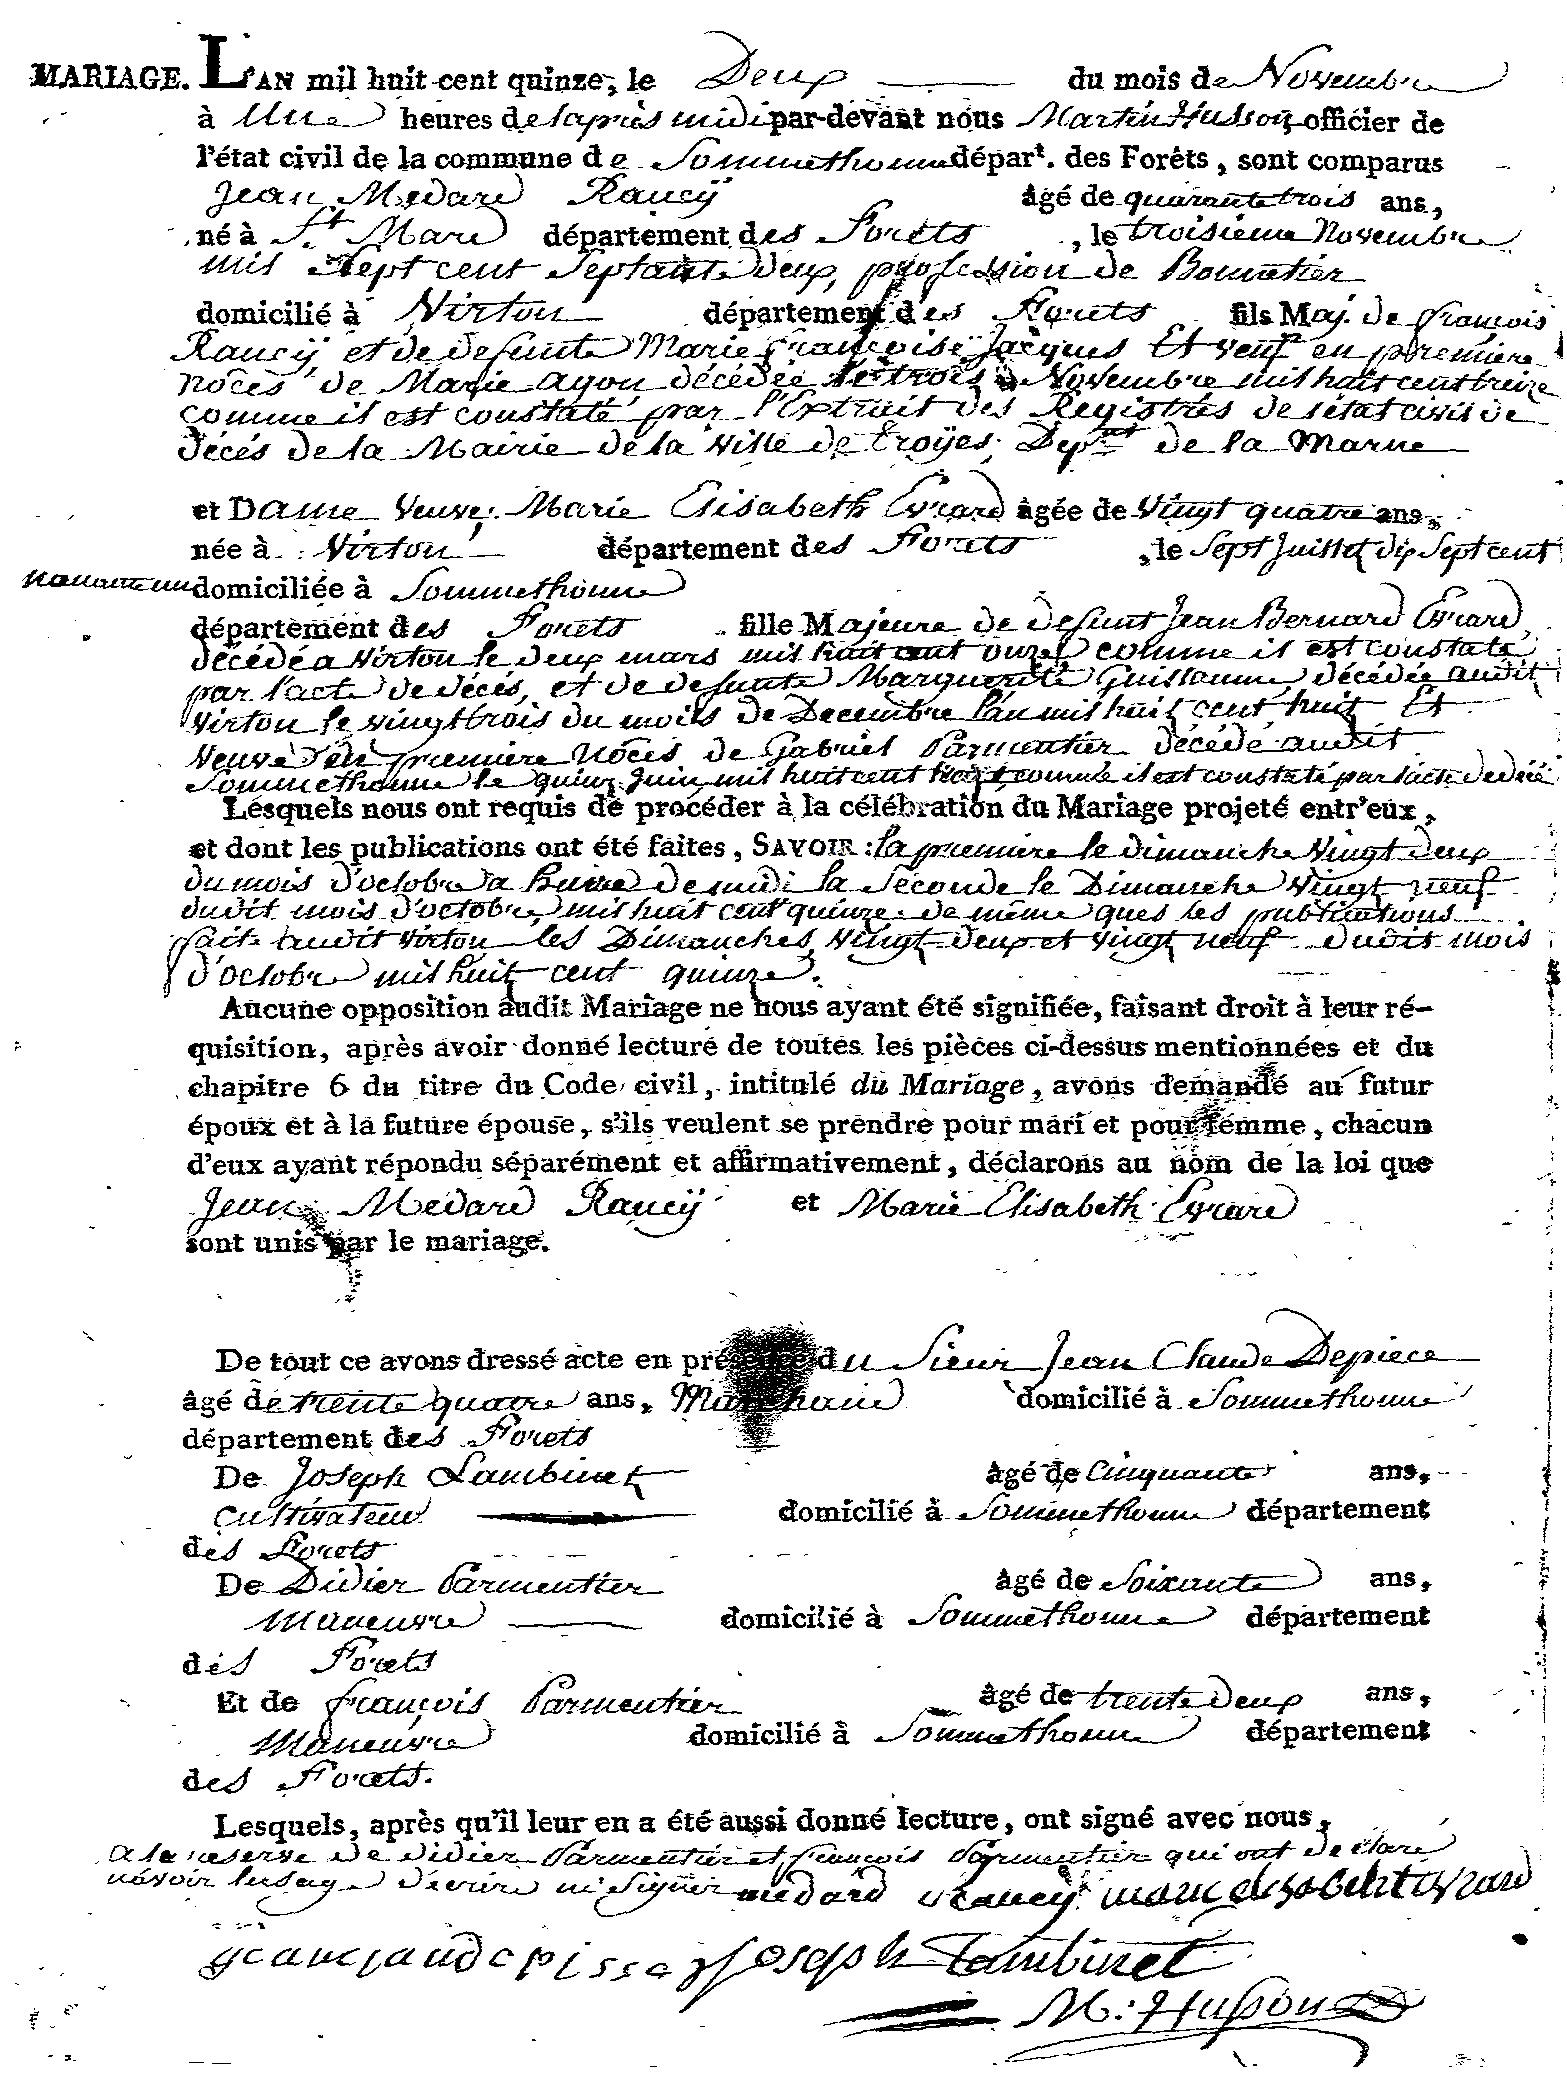 MARIAGE. L'AN mil huit cent quinze, le Deux du mois de Novembre
à Une heures de laprès midi par-devant nous Martin Husson officier de
l'état civil de la commune de Sommethonne départ. des Forêts, sont comparus
Jean Medard Raucÿ âgé de quarante trois ans,
né à St. Mard département des Forêts, le troisieme Novembre
mil Sept cent Septante deux, profession de Bonnetier
domicilié à Virton département des Forets fils Maj. de françois
Raucÿ et de defunte Marie françoise Jacques Et veuf en première
noces de Marie ayou décédée le trois Novembre mil huit cent treize
comme il est constaté par l'Extrait des Registrés de létat civil de
décés de la Mairie de la ville de troÿes, Depmt de la Marne
et Dame Veuve Marie Elisabeth Evrard âgée de Vingt quatre ans,
née à Virton département des Forets, le Sept Juillet dix Sept cent
nonante un domiciliée à Sommethonne
département des Forets fille Majeure de defunt Jean Bernard Evrard,
décédé a Virton le deux mars mil huit cent onze comme il est constaté
par l'acte de décés, et de defunte Marguerite Guillaume, décédée audit
Virton le vingt trois du mois de Decembre l'an mil huit cent huit Et
Veuve en première Noces de Gabriel Parmentier décédé audit
Sommethonne le quinz Juin mil huit cent comme il est constaté par lacte de décé
Lesquels nous ont requis de procéder à la célébration du Mariage projeté entr'eux,
et dont les publications ont été faites, SAVOIR : la première le dimanche Vingt deux
du mois d'octobre a heure de midi la Seconde le Dimanche Vingt neuf
dudit mois d'octobre, mil huit cent quinze. de même ques les publications
fait audit Virton les Dimanches Vingt deux et Vingt neuf dudit mois
d'octobre mil huit cent quinze.
Aucune opposition audit Mariage ne nous ayant été signifiée, faisant droit à leur ré-
quisition, après avoir donné lecture de toutes les pièces ci-dessus mentionnées et du
chapitre 6 du titre du Code civil, intitulé du Mariage, avons demandé au futur
époux et à la future épouse, s'ils veulent se prendre pour mari et pour femme, chacun
d'eux ayant répondu séparément et affirmativement, déclarons au nom de la loi que
Jean Medard Raucÿ et Marie Elisabeth Evrard
sont unis par le mariage.
De tout ce avons dressé acte en présence du Sieur Jean Claude Depiece
âgé de trente quatre ans, Marchand domicilié à Sommethonne
département des Forets
De Joseph Lambinet âgé de Cinquante ans,
Cultivateur domicilié à Sommethonne département
des Forets
De Didier Parmentier âgé de Soixante ans,
Maneuvre domicilié à Sommethonne département
des Forets
Et de françois Parmentier âgé de trente deux ans,
Maneuvre domicilié à Sommethonne département
des Forets.
Lesquels, après qu'il leur en a été aussi donné lecture, ont signé avec nous,
a la reserve de didier Parmentier et françois Parmentier qui ont declaré
navoir lusage décrire ni Signer medard raucÿ marie elisabeht evrard
Joseph Lambinet
M: Husson